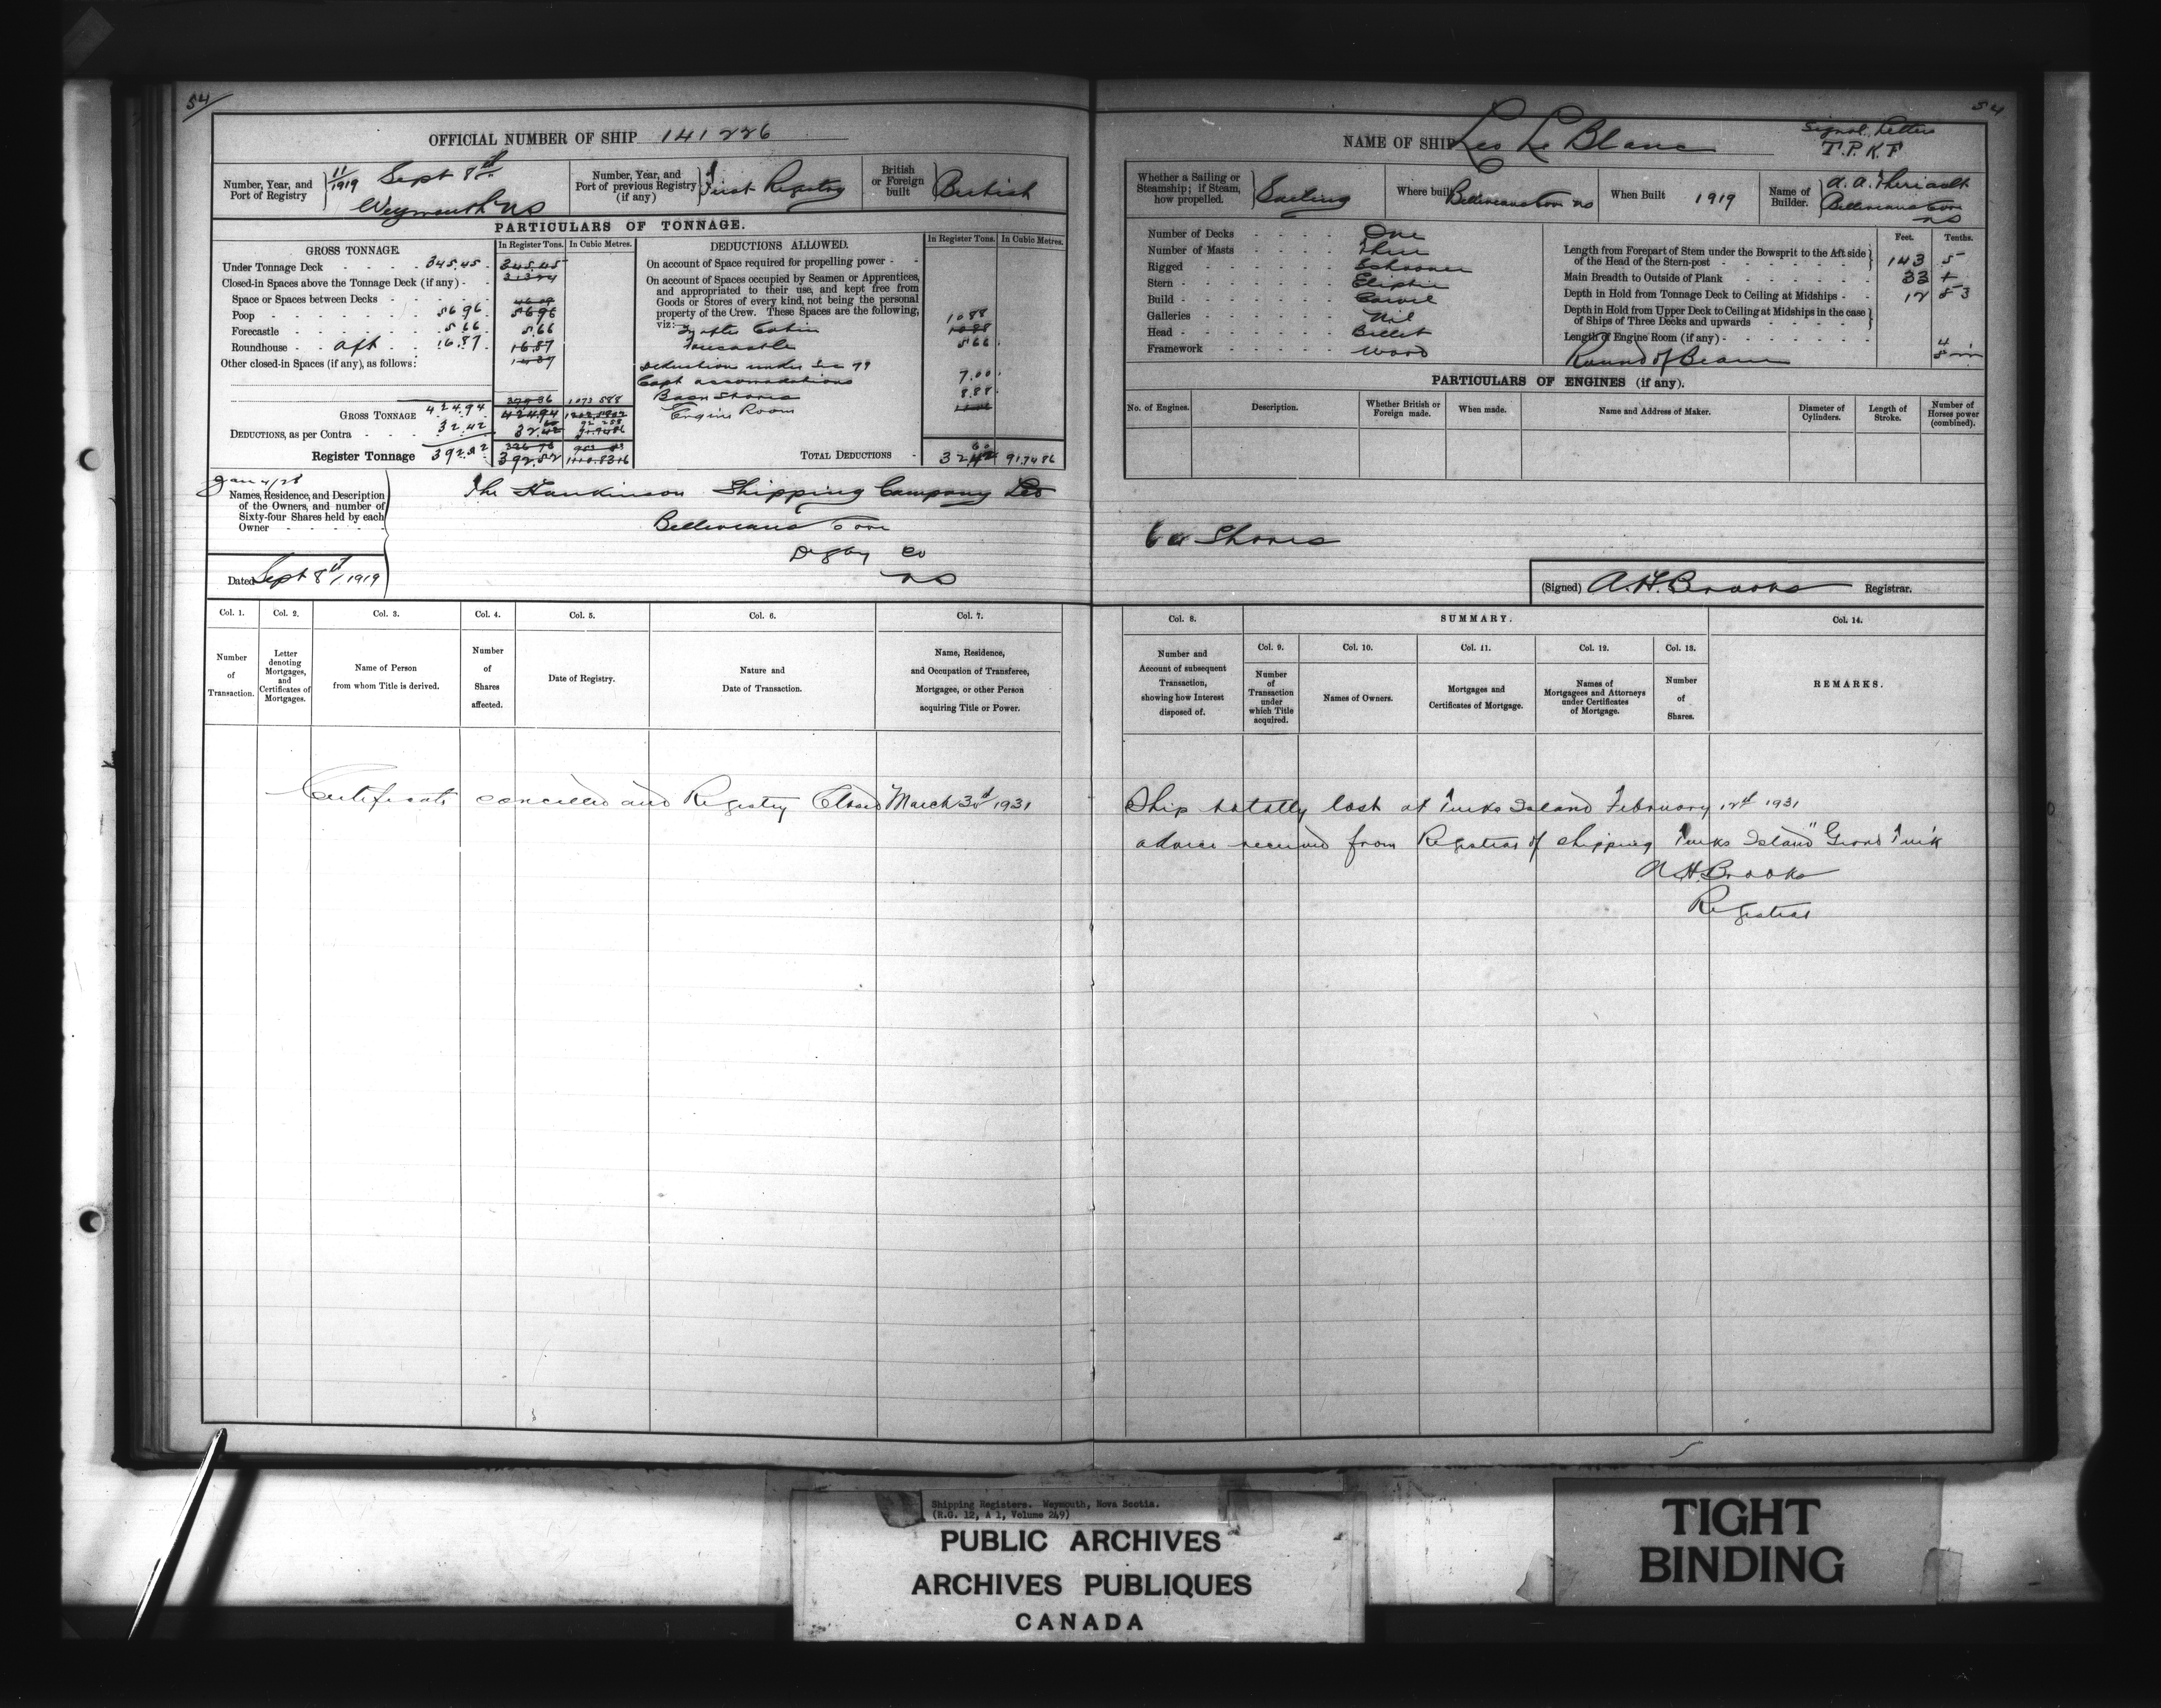 54
OFFICIAL NUMBER OF SHIP 141226
Number, Year, and
Port of Registry
11/1919 Sept 8th
Weymouth NS
Number, Year, and
Port of previous Registry
(if any)
First Registry
British
or Foreign
built
British
PARTICULARS OF TONNAGE.
GROSS TONNAGE.
In Register Tons. In Cubic Metres.
DEDUCTIONS ALLOWED.
In Register Tons. In Cubic Metres.
Under Tonnage Deck 345.45 345.45
Closed-in Spaces above the Tonnage Deck (if any)
Space or Spaces between Decks
Poop 56 96 56 96
Forecastle 5 66 5.66
Roundhouse aft 16.87 16.87
Other closed-in Spaces (if any), as follows:
GROSS TONNAGE 424.94 424.94
DEDUCTIONS, as per Contra 32.42 32.42
Register Tonnage 392.52 392.52
On account of Space required for propelling power
On account of Spaces occupied by Seamen or Apprentices,
and appropriated to their use, and kept free from
Goods or Stores of every kind, not being the personal
property of the Crew. These Spaces are the following,
viz:
In after Cabin 10 88
Forecastle 5 66
Deduction under Sec 79
Capt accomodations 7.00
Bosn Stores 8.88
Engine Room
TOTAL DEDUCTIONS 32 42 91.7486
Jan 4/28
Names, Residence, and Description
of the Owners, and number of
Sixty-four Shares held by each
Owner
The Hankinson Shipping Company Ltd
Belliveaus Cove
Digby Co
NS
Dated Sept 8th/1919
Col. 1. Col. 2. Col. 3. Col. 4. Col. 5. Col. 6. Col. 7.
Number
of
Transaction.
Letter
denoting
Mortgages,
and
Certificates of
Mortgages.
Name of Person
from whom Title is derived.
Number
of
Shares
affected.
Date of Registry.
Nature and
Date of Transaction.
Name, Residence,
and Occupation of Transferee,
Mortgagee, or other Person
acquiring Title or Power.
Certificate cancelled and Registry Closed March 30th 1931
54
NAME OF SHIP Leo Le Blanc
Signal Letters
T.P.K.F.
Whether a Sailing or
Steamship; if Steam,
how propelled.
Sailing
Where built Belliveaus Cove NS
When Built 1919
Name of
Builder.
A. A. Theriault
Belliveaus Cove
NS
Number of Decks One
Number of Masts Three
Rigged Schooner
Stern Eliptic
Build Carvel
Galleries Nil
Head Billet
Framework Wood
Feet. Tenths.
Length from Forepart of Stem under the Bowsprit to the Aft side
of the Head of the Stern-post 143 5
Main Breadth to Outside of Plank 33
Depth in Hold from Tonnage Deck to Ceiling at Midships 12 53
Depth in Hold from Upper Deck to Ceiling at Midships in the case
of Ships of Three Decks and upwards
Length of Engine Room (if any)
Round of Beam
PARTICULARS OF ENGINES (if any).
No. of Engines. Description.
Whether British or
Foreign made.
When made. Name and Address of Maker.
Diameter of
Cylinders.
Length of
Stroke.
Number of
Horses power
(combined).
64 Shares
(Signed) A.H. Brooks Registrar.
Col. 8. SUMMARY. Col. 14.
Col. 9. Col. 10. Col. 11. Col. 12. Col. 13.
Number and
Account of subsequent
Transaction,
showing how Interest
disposed of.
Number
of
Transaction
under
which Title
acquired.
Names of Owners.
Mortgages and
Certificates of Mortgage.
Names of
Mortgagees and Attorneys
under Certificates
of Mortgage.
Number
of
Shares.
REMARKS.
Ship totally lost at Turks Island February 12th 1931
advice received from Registrar of Shipping Turks Island "Grand Turk
A H. Brooks
Registrar
Shipping Registers. Weymouth, Nova Scotia.
(R.G. 12, A 1, Volume 249)
PUBLIC ARCHIVES
ARCHIVES PUBLIQUES
CANADA
TIGHT
BINDING